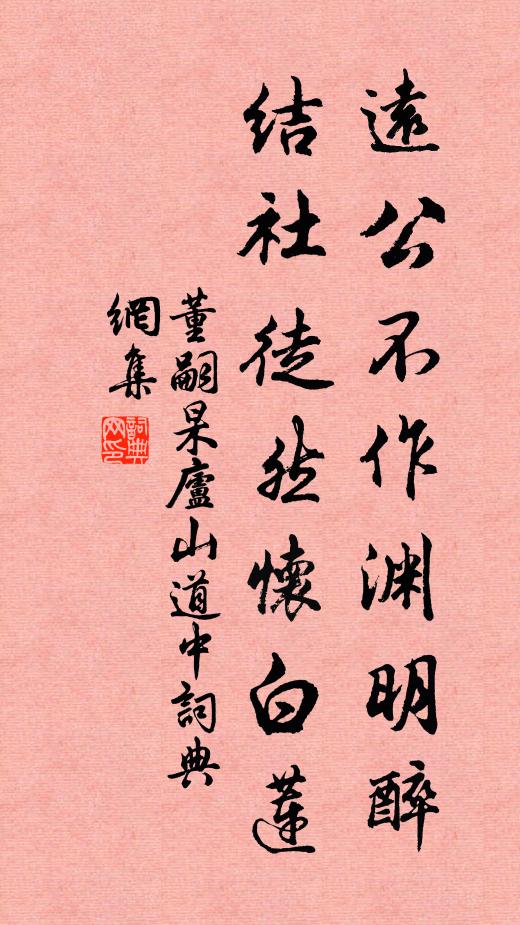 遠公不作渊明醉
结社徒然懷白蓮
董嗣杲廬山道中詞典
網集
詞典网印